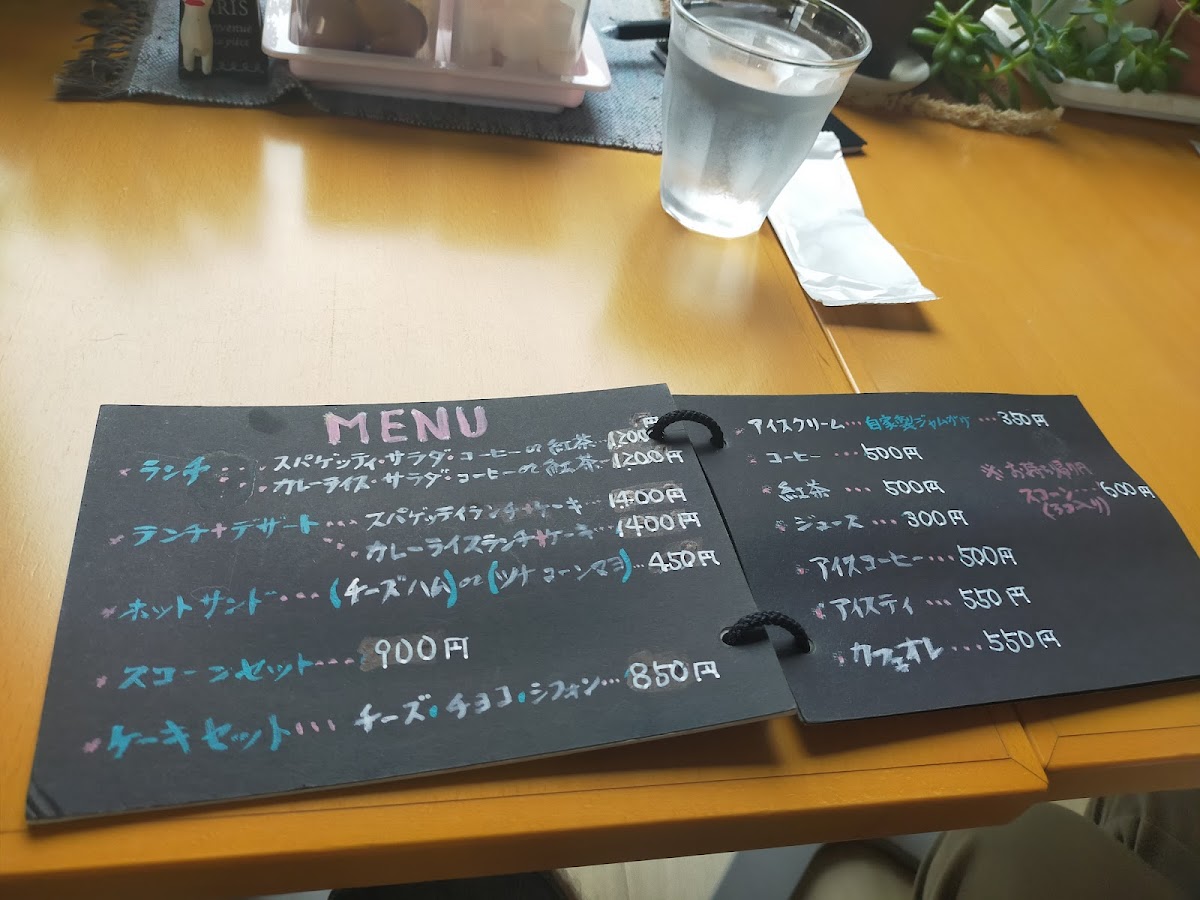 RIS
MENU
*ランチ... スパゲッティ・サラダ・コーヒーor紅茶...1200円
カレーライス・サラダ・コーヒーor紅茶...1200円
*ランチ+デザート... スパゲッティランチ+ケーキ...1400円
カレーライスランチ+ケーキ...1400円
*ホットサンド...(チーズハム)or(ツナコーンマヨ)...450円
*スコーンセット... 900円
*ケーキセット... チーズ・チョコ・シフォン...850円
*アイスクリーム...自家製ジャムガケ...350円
*コーヒー...500円
*紅茶...500円
*ジュース...300円
*アイスコーヒー...500円
*アイスティ...550円
*カフェオレ...550円
※お持ち帰り用
スコーン...600円
(3コ入り)